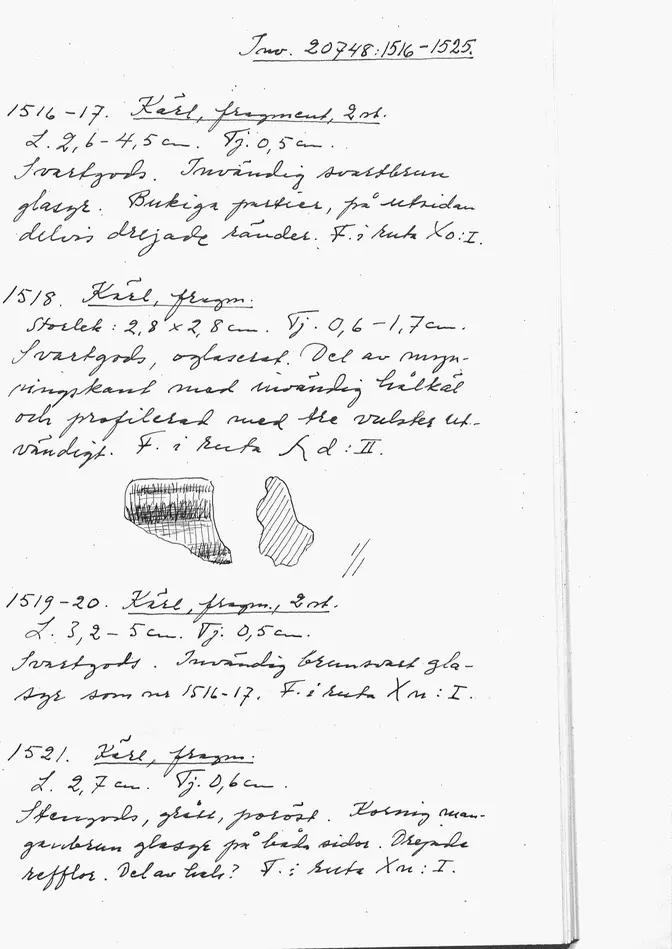 Inv. 20748:1516-1525.
1516-17. Kärl, fragment, 2 st.
L. 2,6-4,5 cm. Tj. 0,5 cm.
Svartgods. Invändig svartbrun
glasyr. Bukiga partier, på utsidan
delvis drejade ränder. F. i ruta Xo:I.
1518. Kärl, fragm.
Storlek: 2,8 x 2,8 cm. Tj. 0,6-1,7 cm.
Svartgods, oglaserat. Del av myn-
ningskant med invändig hålkäl
och profilerad med tre vulster ut-
vändigt. F. i ruta d:II.
1519-20. Kärl, fragm., 2 st.
L. 3,2-5 cm. Tj. 0,5 cm.
Svartgods. Invändig brunsvart gla-
syr som nr 1516-17. F. i ruta Xn:I.
1521. Kärl, fragm.
L. 2,7 cm. Tj. 0,6 cm.
Stengods, grått, poröst. Kornig man-
ganbrun glasyr på båda sidor. Drejade
refflor. Del av hals? F. i ruta Xn:I.